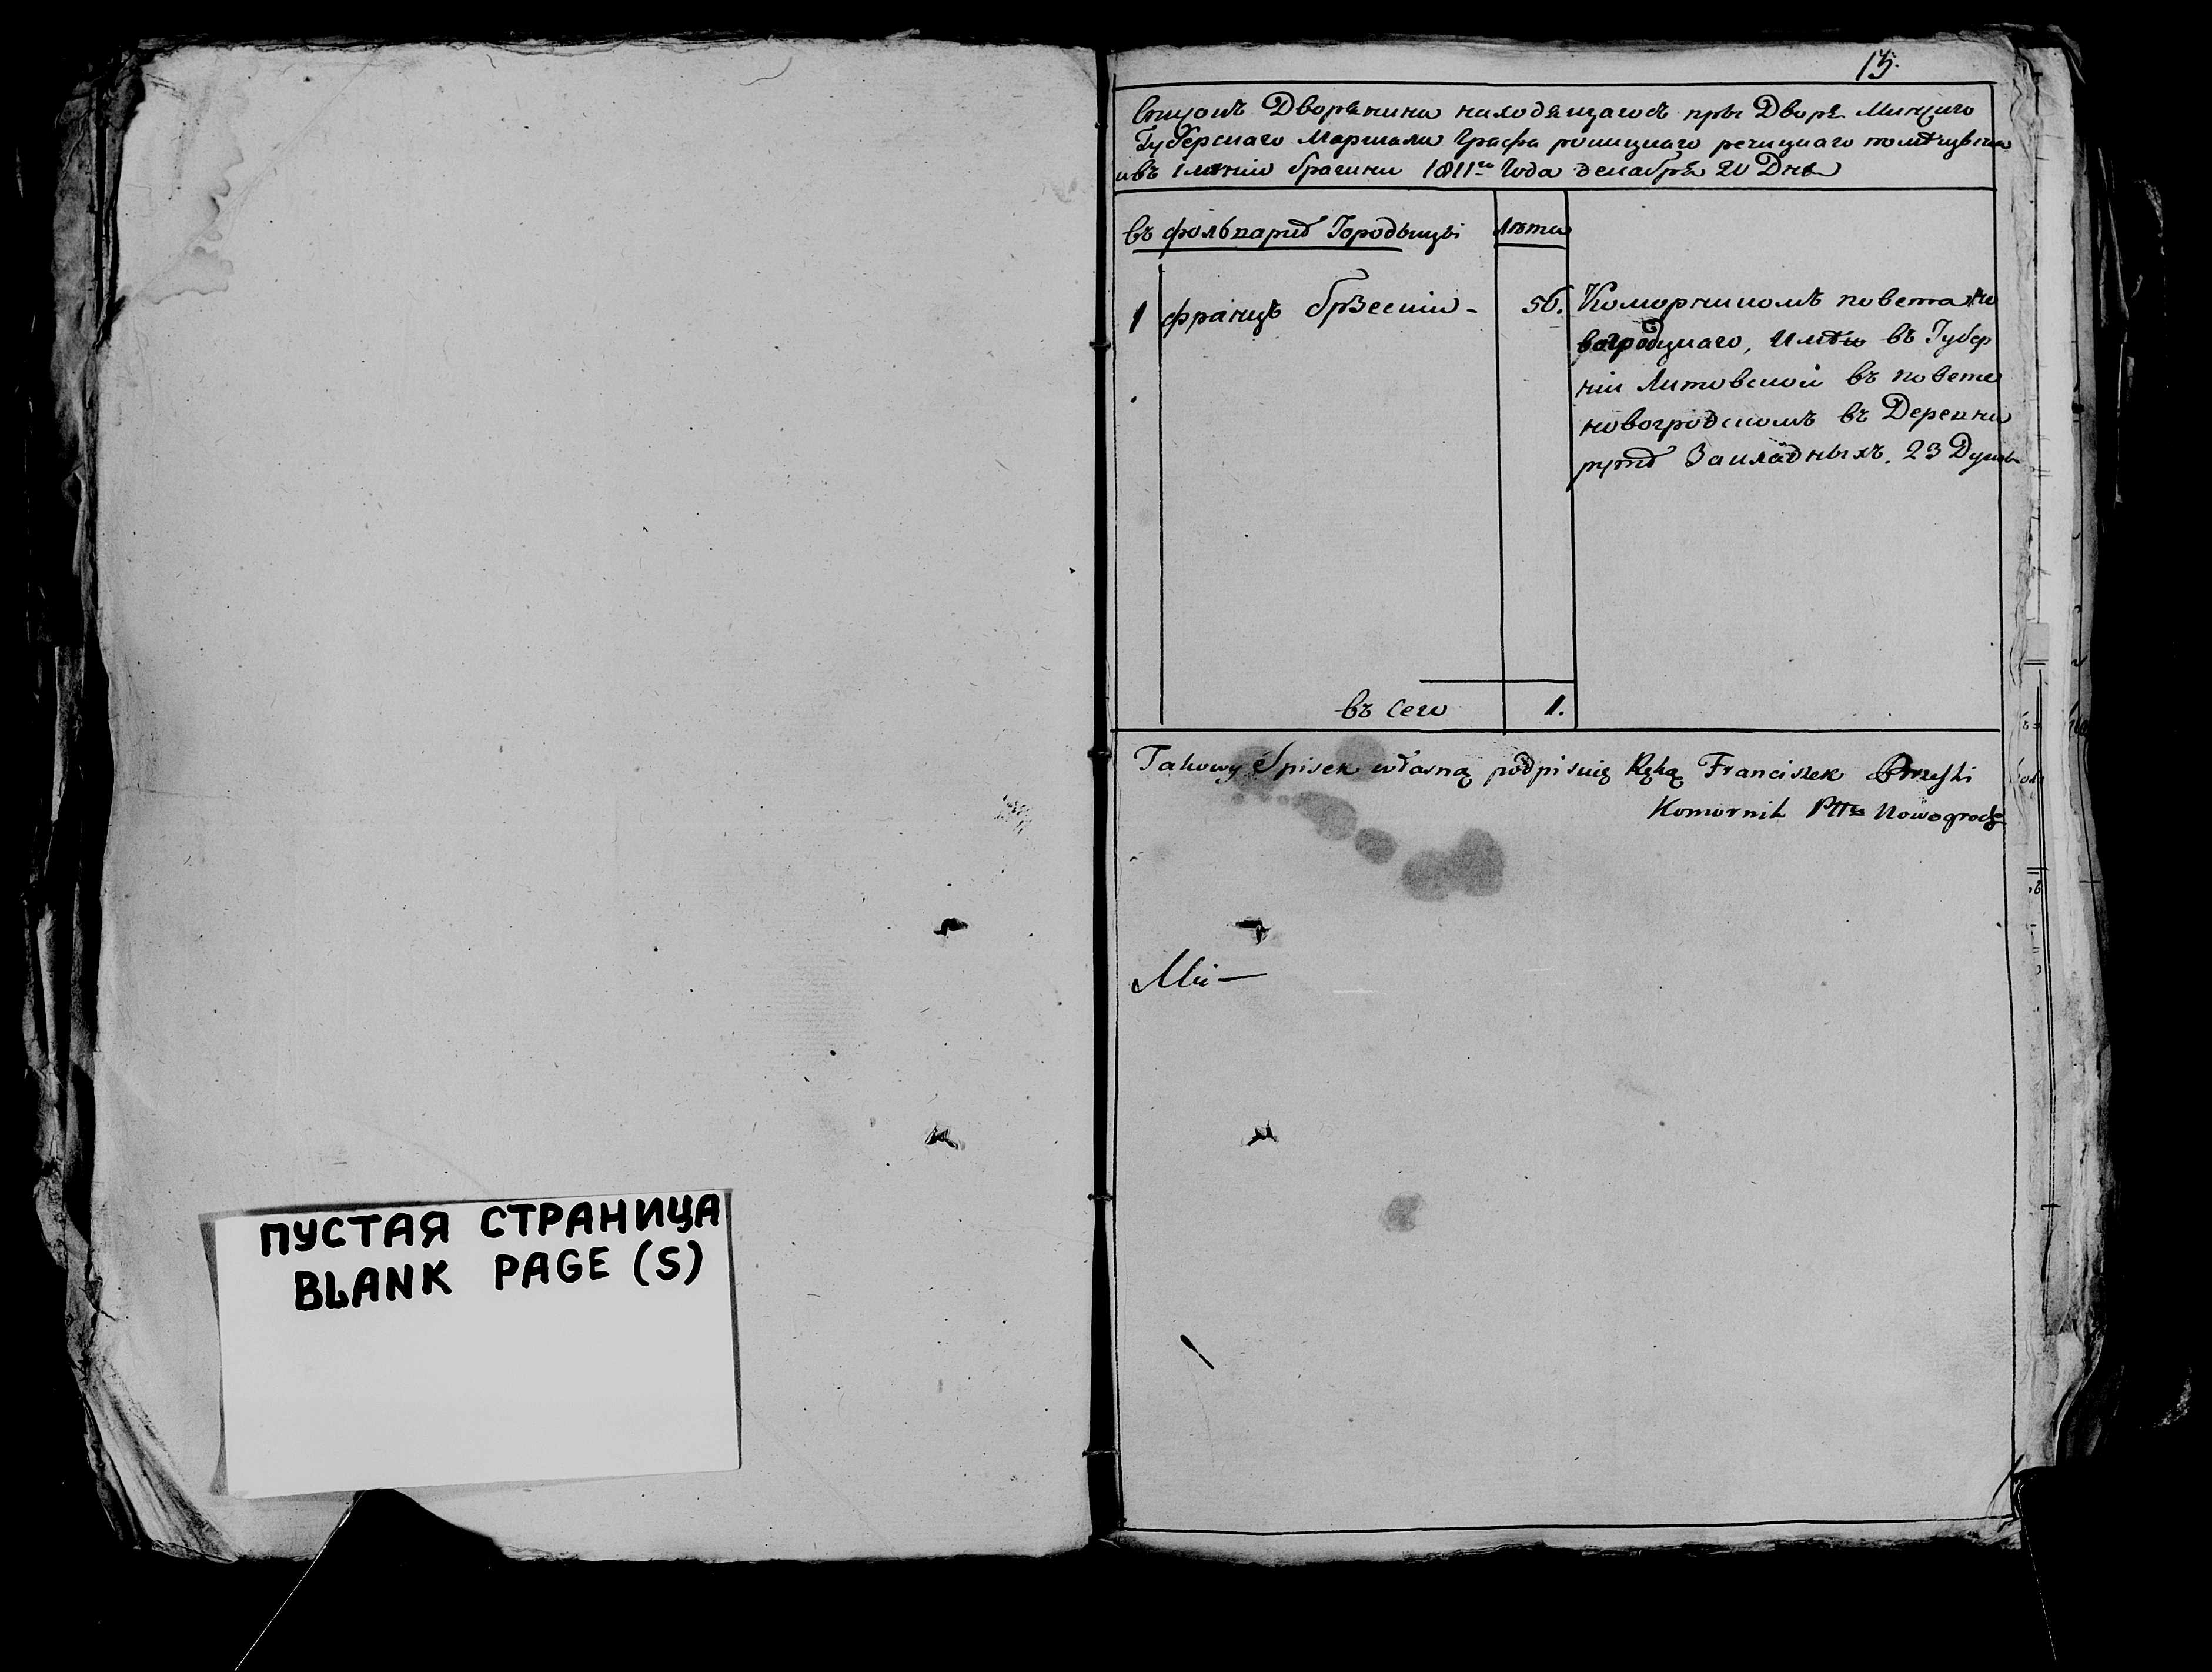 ПУСТАЯ СТРАНИЦА
BLANK PAGE (S)
13.
Списокъ Дворянина находящагось при Дворѣ Минского
Губерскаго Маршала Графа роницкаго речицкаго
имѣнiи брагини 1811го Года декабря 20 Дня
въ фольварке Городыщи
лѣта
1 францъ брзескiи -
56.
Коморникомъ повета но
вогродцкаго, имѣи въ Губер
нiи Литовской въ повете
новогродскомъ въ Деревни
рутѣ Закладныхъ. 23 Душъ
въ сего
1.
Takowy Spisek własną podpisuię Ręką Franciszek Brzeski
Komornik Pttu Nowogrodgo